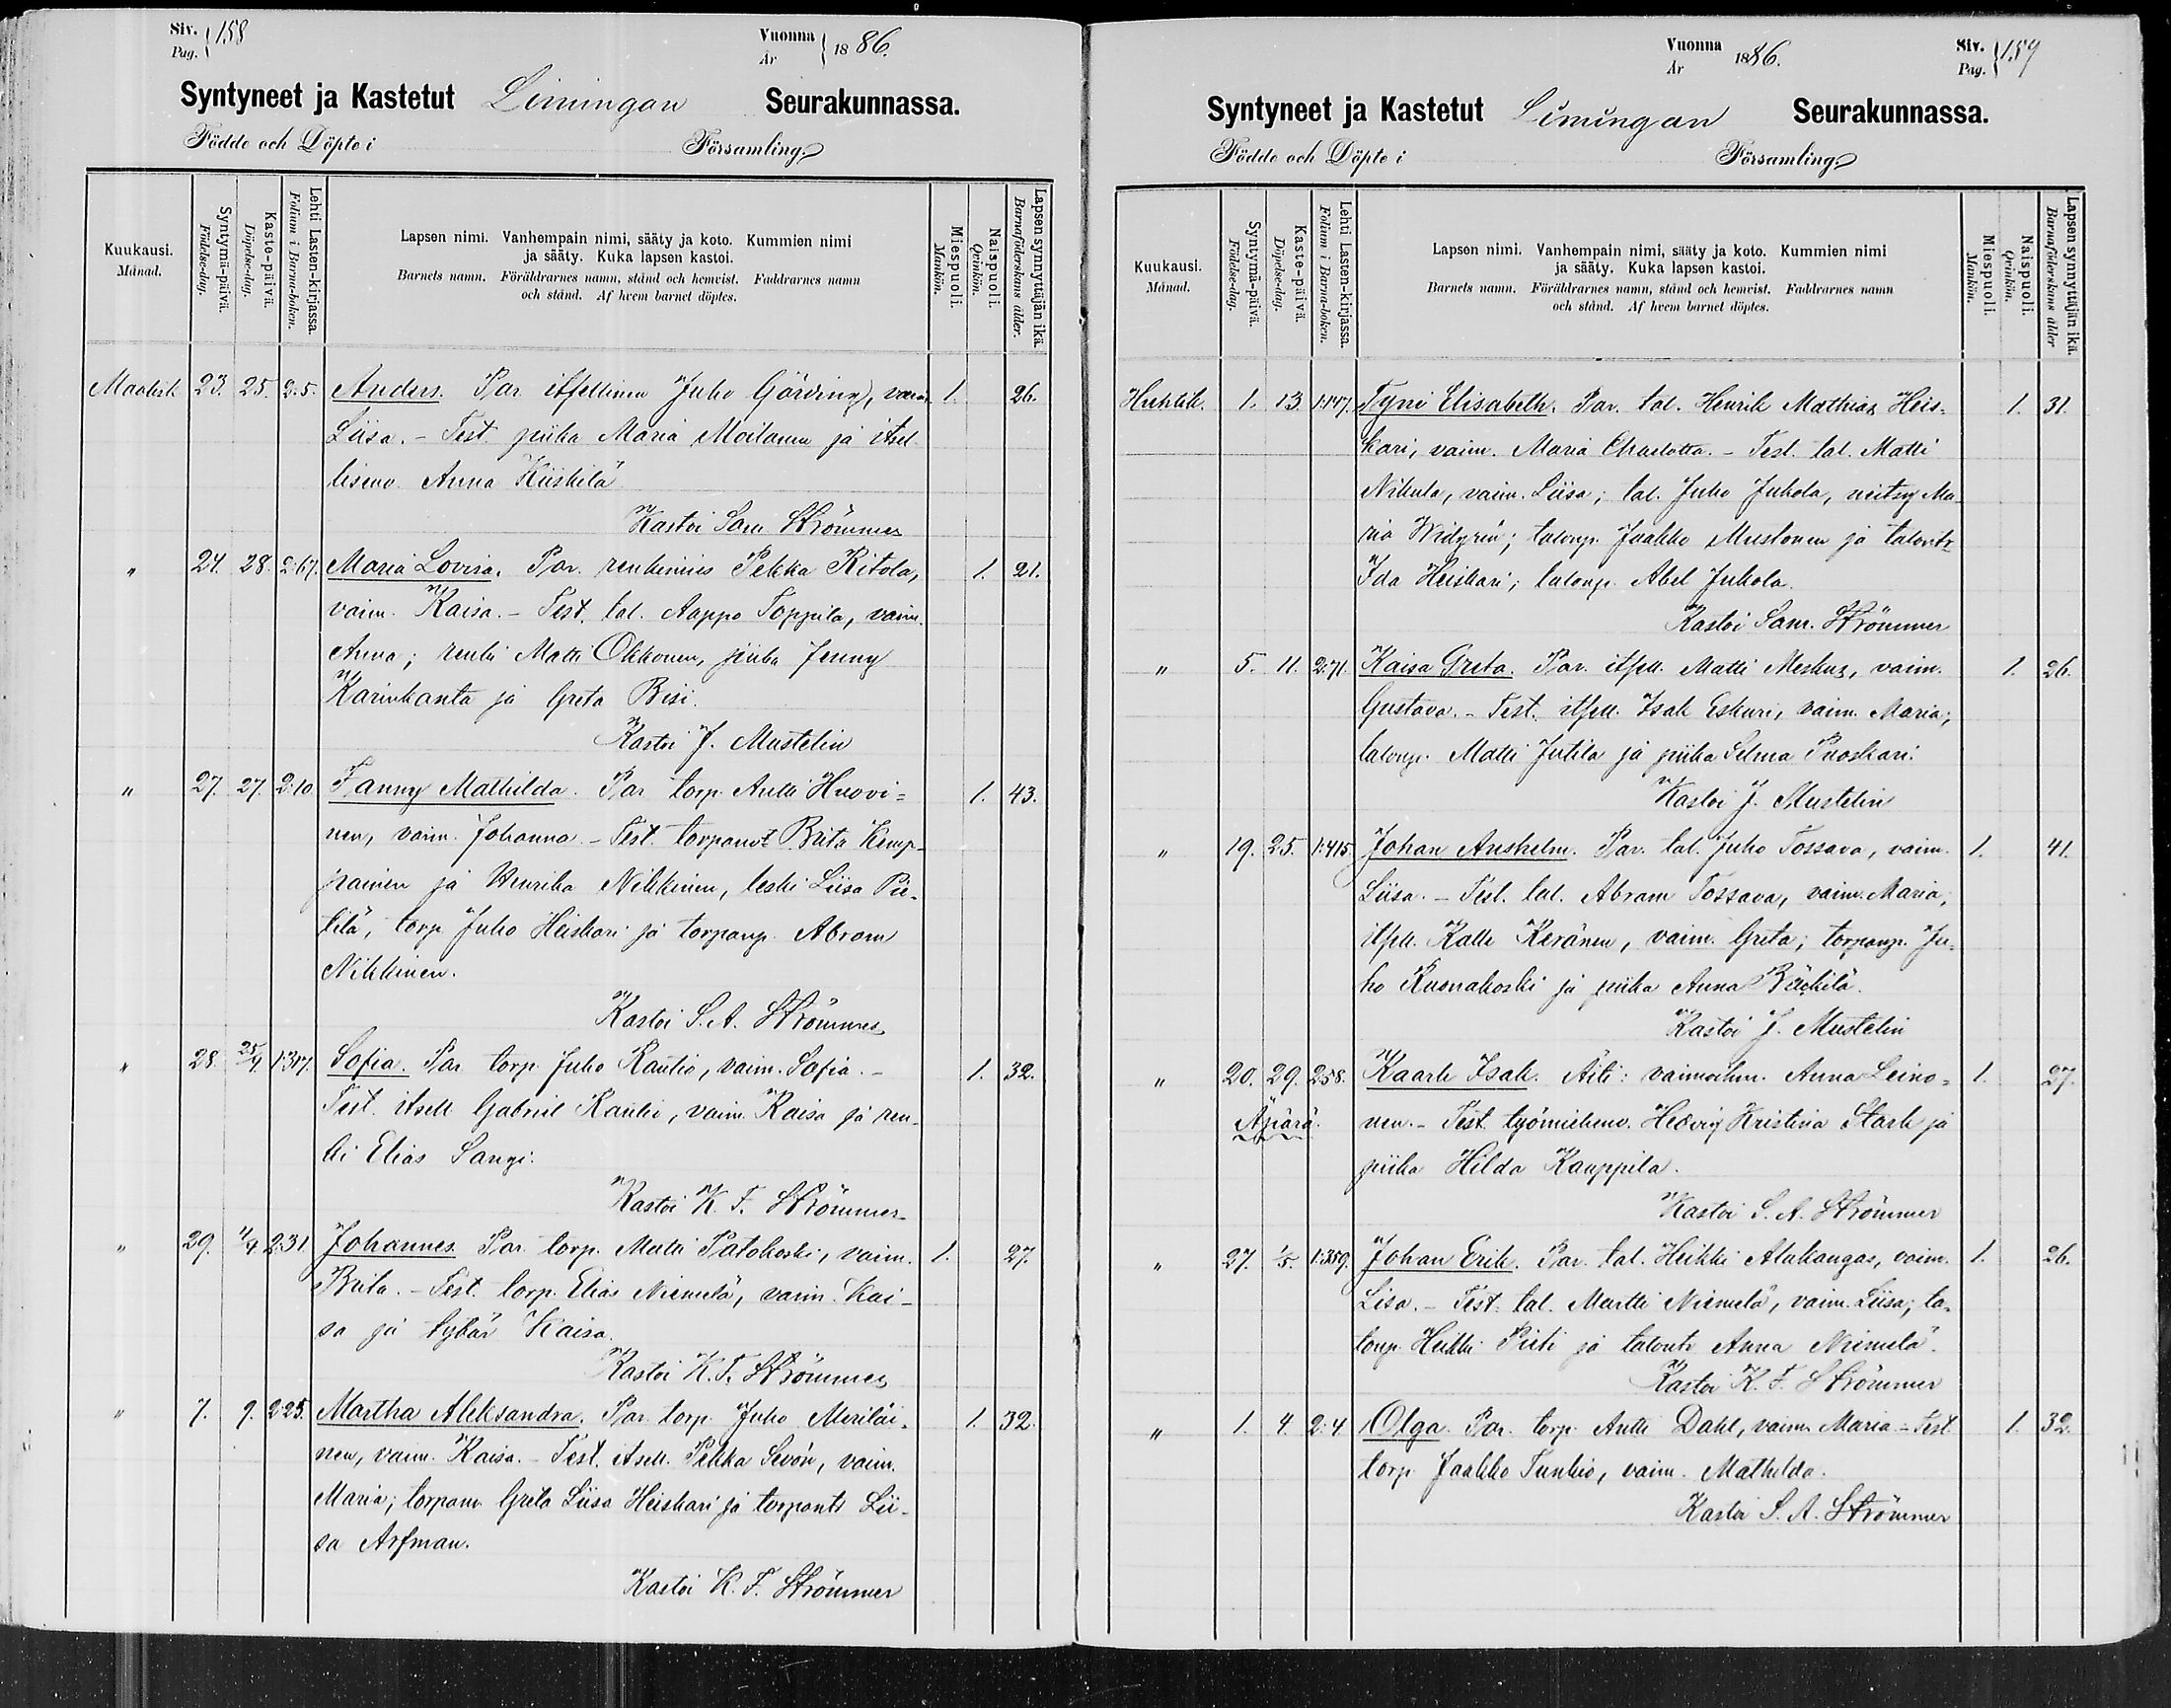 Siv. Pag. 158
Vuonna År 1886.
Syntyneet ja Kastetut Limingan Seurakunnassa.
Födde och Döpte i Församling.
Kuukausi. Månad.
Syntymä-päivä. Födelse-dag.
Kaste-päivä. Döpelse-dag.
Lehti Lasten-kirjassa. Folium i Barna-boken.
Lapsen nimi. Vanhempain nimi, sääty ja koto. Kummien nimi
ja sääty. Kuka lapsen kastoi.
Barnets namn. Föräldrarnes namn, stånd och hemvist. Faddrarnes namn
och stånd. Af hvem barnet döptes.
Miespuoli. Mankön.
Naispuoli. Qvinkön.
Lapsen synnyttäjän ikä. Barnaföderskans ålder.
Maalisk 23. 25. 2:5. Anders. Par. itsellinen Juho Görding, vaim. 1. 26.
Liisa. - Test piika Maria Moilanen ja itsel
lisenv. Anna Kiiskilä
Kastoi Sam Strömmer
" 24. 28. 2:67. Maria Lovisa. Par. renkimies Pekka Ritola, 1. 21.
vaim. Kaisa. - Test. tal. Aappo Toppila, vaim.
Anna; renki Matti Okkonen, piika Jenny
Karinkanta ja Greta Bisi.
Kastoi J. Mustelin
" 27. 27. 2:10 Fanny Mathilda. Par torp. Antti Huovi= 1. 43.
nen, vaim. Johanna - Test. torpanvt Brita Kemp-
painen ja Henrika Nikkinen, leski Liisa Pie-
tilä, torp. Juho Heiskari ja torpanp. Abram
Nikkinen.
Kastoi S. A. Strömmer
" 28. 25/4. 1:317. Sofia. Par torp Juho Rautio, vaim. Sofia. - 1. 32.
Test. itsell Gabriel Rautio, vaim. Kaisa ja ren-
ki Elias Sangi.
Kastoi K. F. Strömmer
" 29. 4/4 2:31 Johannes. Par torp. Matti Patokoski, vaim. 1. 27.
Brita. - Test. torp. Elias Niemelä, vaim. Kai-
sa ja tytär Kaisa.
Kastoi K. F. Strömmer
" 7. 9. 2:25. Martha Aleksandra. Par torp Juho Meriläi- 1. 32.
nen, vaim. Kaisa. - Test. itsell. Pekka Sevón, vaim.
Maria; torpanv. Greta Liisa Heiskari ja torpantr Lii-
sa Arfman.
Kastoi K. F. Strömmer
Vuonna År 1886.
Siv. Pag. 159
Syntyneet ja Kastetut Limingan Seurakunnassa.
Födde och Döpte i Församling.
Kuukausi. Månad.
Syntymä-päivä. Födelse-dag.
Kaste-päivä. Döpelse-dag.
Lehti Lasten-kirjassa. Folium i Barna-boken.
Lapsen nimi. Vanhempain nimi, sääty ja koto. Kummien nimi
ja sääty. Kuka lapsen kastoi.
Barnets namn. Föräldrarnes namn, stånd och hemvist. Faddrarnes namn
och stånd. Af hvem barnet döptes.
Miespuoli. Mankön.
Naispuoli. Qvinkön.
Lapsen synnyttäjän ikä. Barnaföderskans ålder
Huhtik. 1. 13. 1:147. Tyni Elisabeth. Par. tal. Henrik Mathias Heis= 1. 31.
kari, vaim. Maria Charlotta. - Test. tal. Matti
Nikula, vaim. Liisa; tal. Juho Juhola, neitsy Ma-
ria Widgrén; talonp. Jaakko Mustonen ja talontr
Ida Heiskari; talonp. Abel Juhola.
Kastoi Sam. Strömmer
" 5. 11. 2:71. Kaisa Greta. Par. itsell. Matti Meskus, vaim. 1. 26.
Gustava. - Test. itsell. Isak Eskuri, vaim. Maria;
talonp. Matti Jutila ja piika Selma Puoskari.
Kastoi J. Mustelin
" 19. 25. 1:415. Johan Anshelm. Par. tal. Juho Tossava, vaim. 1. 41.
Liisa. - Test. tal. Abram Tossava, vaim. Maria,
itsell. Kalle Keränen, vaim. Greta; torpanp. Ju-
ho Kuonakoski ja piika Anna Räihilä.
Kastoi J. Mustelin
" 20. 29. 258. Kaarle Isak. Äiti: vaimoihm. Anna Leino= 1. 27.
Äpärä. nen. - Test. työmiehenv. Hedvig Kristina Stark ja
piika Hilda Kauppila.
Kastoi S. A. Strömmer
" 27. 1/5. 1:359. Johan Erik. Par. tal. Heikki Alakangas, vaim. 1. 26.
Lisa. - Test. tal. Martti Niemelä, vaim. Liisa; ta-
lonp. Heikki Pieti ja talontr Anna Niemelä.
Kastoi K. F. Strömmer
" 1. 4. 2:4. Olga. Par. torp. Antti Dahl, vaim. Maria - Test. 1. 32.
torp. Jaakko Tunkio, vaim. Mathilda.
Kastoi S. A. Strömmer